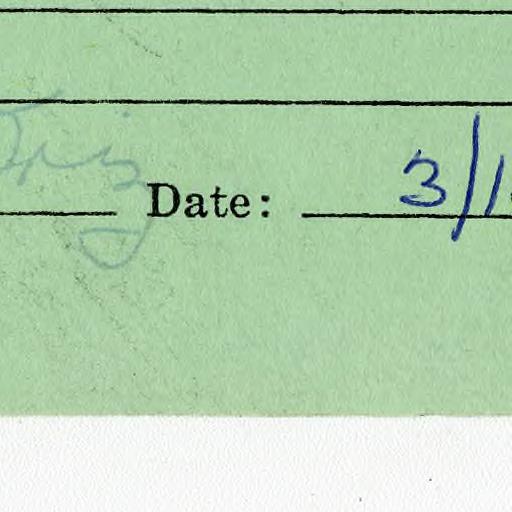 Date: 3/1